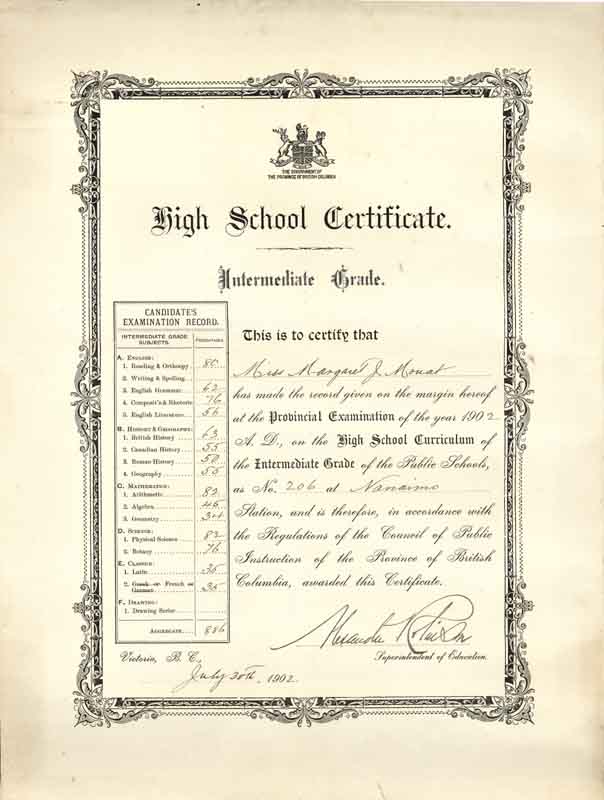 THE GOVERNMENT OF
THE PROVINCE OF BRITISH COLUMBIA
High School Certificate.
Intermediate Grade.
CANDIDATE'S
EXAMINATION RECORD.
INTERMEDIATE GRADE
SUBJECTS.
PERCENTAGE
A. ENGLISH:
1. Reading & Orthoepy 80
2. Writing & Spelling
3. English Grammar 62
4. Composit'n & Rhetoric 76
5. English Literature 56
B. HISTORY & GEOGRAPHY:
1. British History 63
2. Canadian History 55
3. Roman History 50
4. Geography 55
C. MATHEMATICS:
1. Arithmetic 82
2. Algebra 46
3. Geometry 34
D. SCIENCE:
1. Physical Science 82
2. Botany 76
E. CLASSICS:
1. Latin 35
2. Greek or French or
German 35
F. DRAWING:
1. Drawing Series
AGGREGATE 886
This is to certify that
Miss Margaret J. Mouat
has made the record given on the margin hereof
at the Provincial Examination of the year 1902
A. D., on the High School Curriculum of
the Intermediate Grade of the Public Schools,
as No. 206 at Nanaimo
Station, and is therefore, in accordance with
the Regulations of the Council of Public
Instruction of the Province of British
Columbia, awarded this Certificate.
Alexander Robinson
Superintendent of Education.
Victoria, B. C.,
July 30th, 1902.